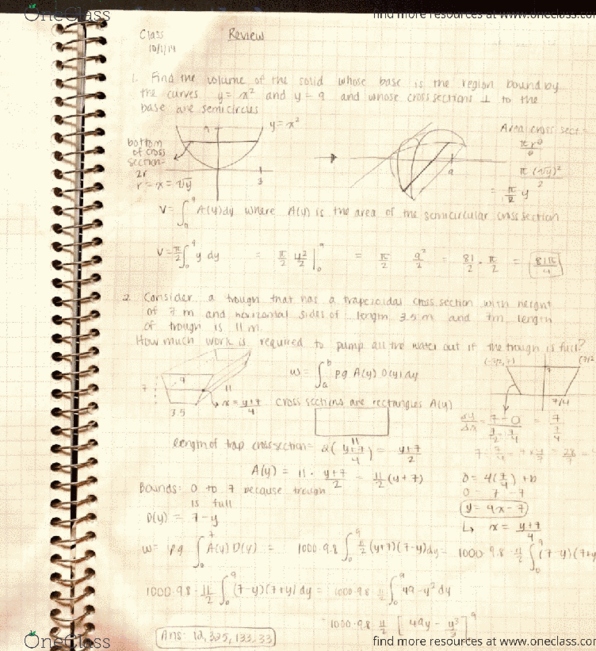 OneClass
find more resources at www.oneclass.com
Class Review
10/1/14
1. Find the volume of the solid whose base is the region bound by
the curves y = x² and y = 9 and whose cross sections ⊥ to the
base are semicircles
y = x²
bottom
of cross
section =
2r
r = x = √y
3
Area cross sect
π r²
π (√y)²
2
= π/2 y
V = ∫ A(y) dy where A(y) is the area of the semicircular cross section
V = π/2 ∫ y dy = π/2 y²/2 |₀⁹ = π/2 9²/2 = 81/2 · π/2 = 81π/4
2. Consider a trough that has a trapezoidal cross section with height
of 7 m and horizontal sides of length 3.5 m and 7m. Length
of trough is 11 m.
How much work is required to pump all the water out if the trough is full?
W = ∫ₐᵇ ρg A(y) D(y) dy
7
11
3.5
x = y+7/4
cross sections are rectangles A(y)
11
length of trap cross section = 2(y+7/4) = y+7/2
A(y) = 11 · y+7/2 = 11/2 (y+7)
Bounds: 0 to 7 because trough
is full
D(y) = 7-y
y = 4x - 7
↳ x = y+7/4
W = ρg ∫ A(y) D(y) = 1000·9.8 ∫ (y+7)(7-y) dy = 1000·9.8·11/2 ∫ (7-y)(7+y
1000·9.8·11/2 ∫ (7-y)(7+y) dy = 1000·9.8·11/2 ∫ 49 - y² dy
1000·9.8·11/2 [49y - y³/3]
Ans: 12,325,133.33
OneClass
find more resources at www.oneclass.com